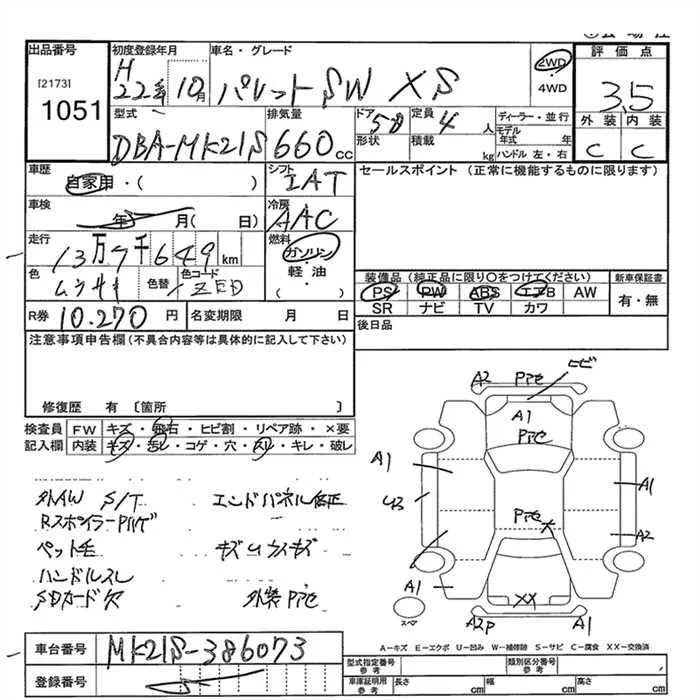 出品番号
[2173]
1051
初度登録年月
H
22年 10月
車名・グレード
パレットSW XS
2WD
・
4WD
評価点
3.5
外装 内装
C C
型式
DBA-MK21S
排気量
660cc
ドア
5D
形状
定員
4人
積載
kg
ディーラー・並行
モデル年式 年
ハンドル 左・右
車歴
自家用・( )
シフト
IAT
セールスポイント (正常に機能するものに限ります)
車検
年 月( 日)
冷房
AAC
走行
13万7千649km
燃料
ガソリン
・
軽油
( )
色
ムラサキ
色替
色コード
ZED
装備品 (純正品に限り〇をつけてください)
PS PW ABS エアB AW
SR ナビ TV カワ
新車保証書
有・無
R券
10.270円
名変期限 月 日
後日品
注意事項申告欄(不具合内容等は具体的に記入して下さい)
修復歴 有〔箇所 〕
検査員記入欄
FW キズ・飛石・ヒビ割・リペア跡・×要
内装 キズ・汚レ・コゲ・穴・スレ・キレ・破レ
外AW S/T
エンドパネル修正
Rスポイラー
ペット毛
ハンドルスレ
SDカード欠
外装 Pte
A2 Pte ヒビ
A1
Pte
A1
U3
A1
Pte
X
A2
A1
XX
A2P
A1
スペア
A-キズ E-エクボ U-凹み W-補修跡 S-サビ C-腐食 XX-交換済
車台番号
MK21S-386073
登録番号
型式指定番号
参考
類別区分番号
参考
車庫証明用
参考
長さ cm
幅 cm
高さ cm